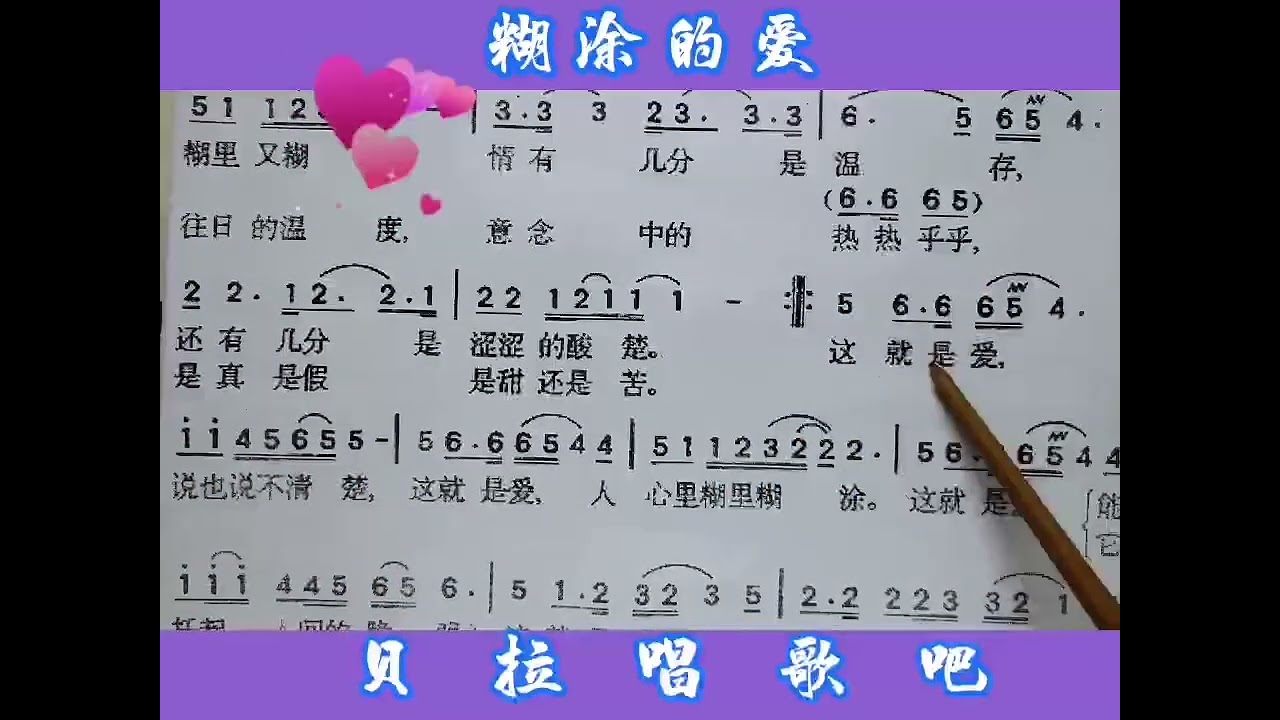 糊涂的爱
5 1 1 2 3.3 3 2 3. 3.3 6. 5 6 5 4.
糊里 又糊 情有 几分 是 温 存,
(6.6 6 5)
往日 的温 度, 意念 中的 热热 乎乎,
2 2. 1 2. 2.1 2 2 1 2 1 1 1 - 5 6.6 6 5 4.
还有 几分 是 涩涩 的酸 楚。 这 就是 爱,
是真 是假 是甜 还是 苦。
i i 4 5 6 5 5 - 5 6.6 6 5 4 4 5 1 1 2 3 2 2 2. 5 6. 6 5 4 4
说也说不清 楚, 这就 是爱, 人 心里糊里糊 涂。 这就 是
能
它
i i i 4 4 5 6 5 6. 5 1.2 3 2 3 5 2.2 2 2 3 3 2 1
贝拉唱歌吧